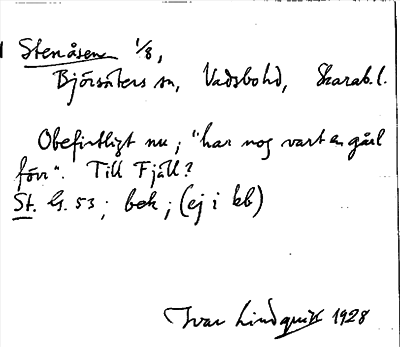 Stenåsen 1/8,
Björsäters sn, Vadsbo hd, Skarab. l.
Obefintligt nu; "har nog vart en gård
förr". Till Fjäll?
St. G. 53; bok; (ej i kb)
Ivar Lindquist 1928